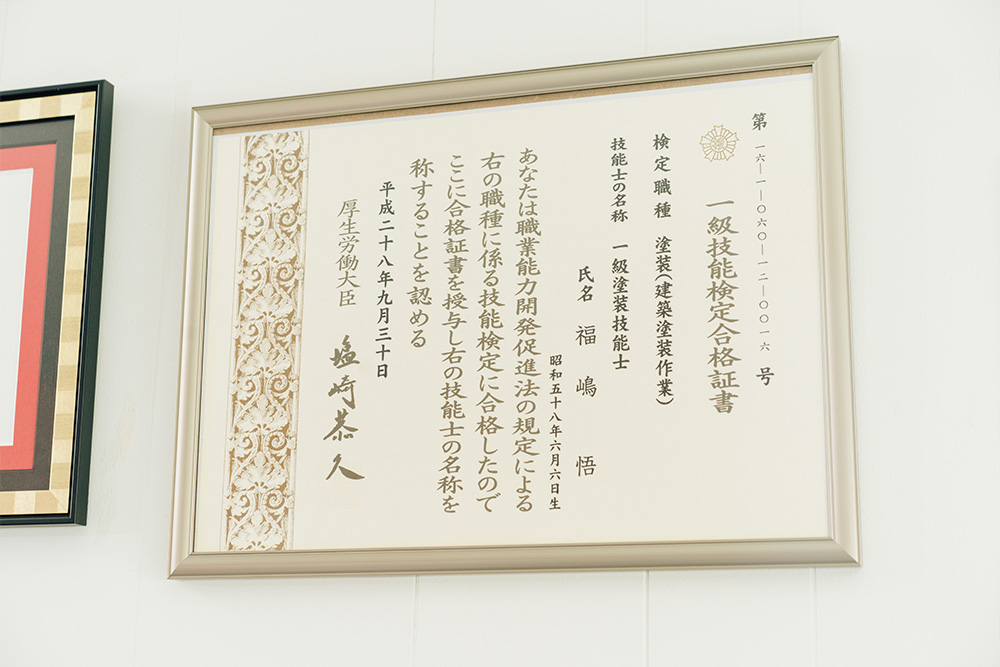 第 一六―一―〇六〇―一二―〇〇一六 号
一級技能検定合格証書
検定職種 塗装(建築塗装作業)
技能士の名称 一級塗装技能士
氏名 福嶋悟
昭和五十八年六月六日生
あなたは職業能力開発促進法の規定による
右の職種に係る技能検定に合格したので
ここに合格証書を授与し右の技能士の名称を
称することを認める
平成二十八年九月三十日
厚生労働大臣 塩崎恭久